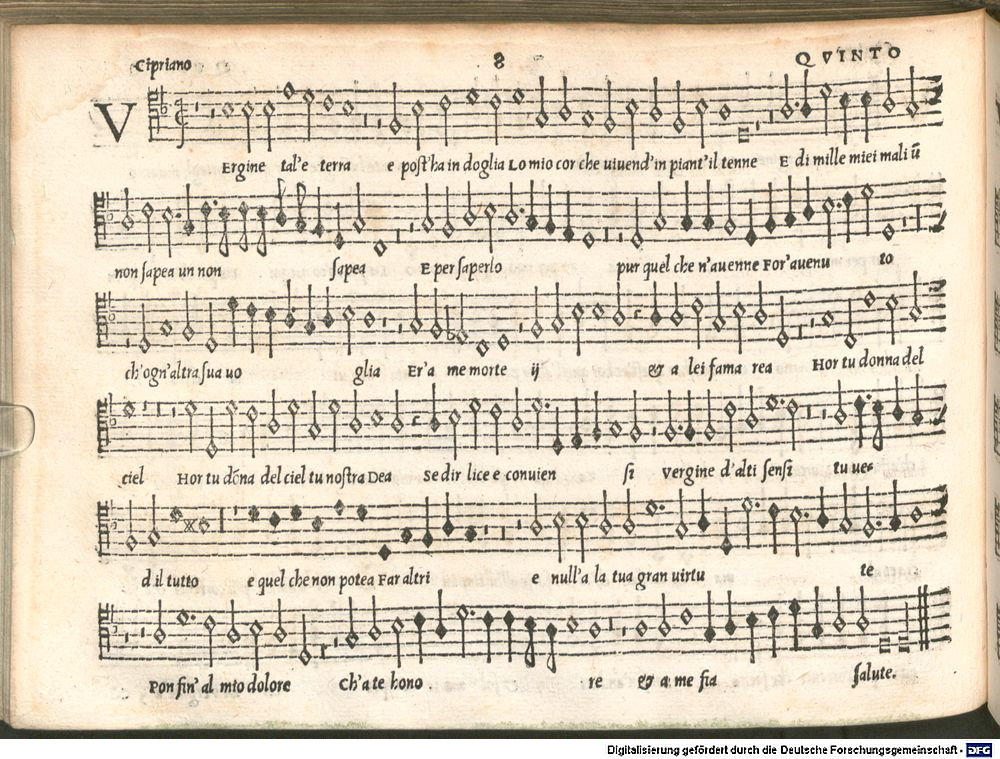 Cipriano 8 QVINTO
VErgine tal'e terra e post'ha in doglia Lo mio cor che viuend'in piant'il tenne E di mille miei mali ũ
non sapea un non sapea E per saperlo pur quel che n'auenne For'auenu to
ch'ogn'altra sua uo glia Er'a me morte ij & a lei fama rea Hor tu donna del
ciel Hor tu dōna del ciel tu nostra Dea Se dir lice e conuien si vergine d'alti sensi tu ue-
d il tutto e quel che non potea Far altri e null'a la tua gran uirtu te
Pon fin' al mio dolore Ch'a te hono re & a me fia salute.
Digitalisierung gefördert durch die Deutsche Forschungsgemeinschaft - DFG